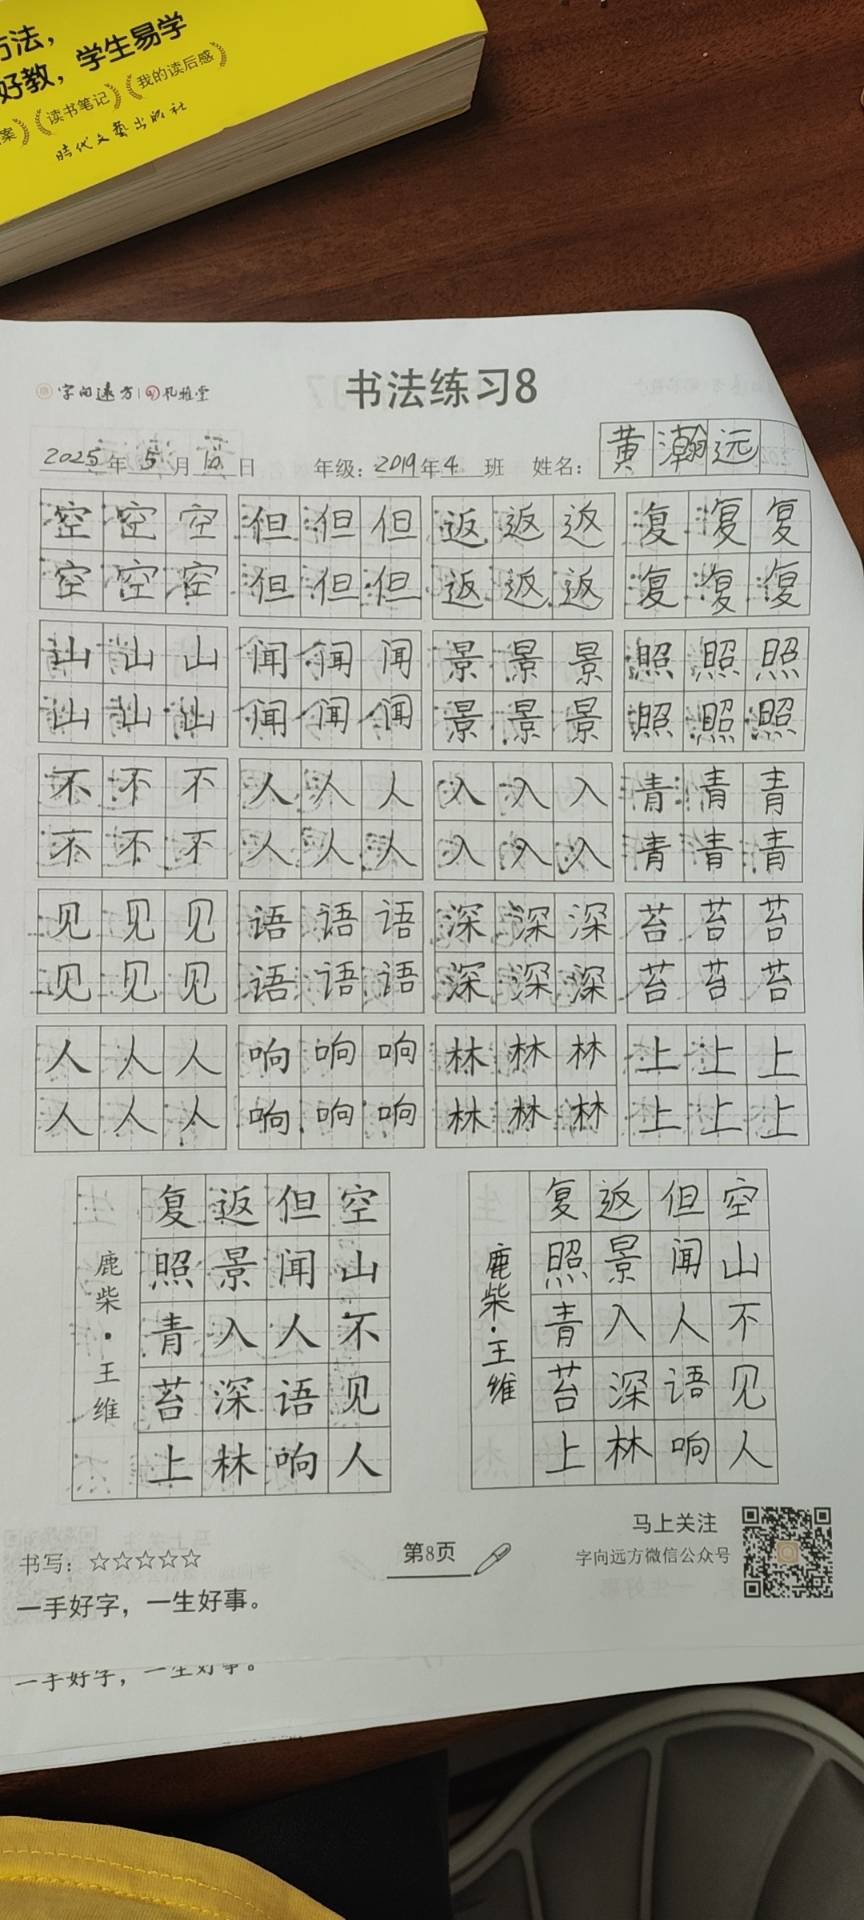 方法，
好教，学生易学
案 读书笔记 我的读后感
时代文艺出版社
字向远方 孔雅堂
书法练习8
2025年5月10日 年级：2019年4班 姓名：黄瀚远
空空空 但但但 返返返 复复复
空空空 但但但 返返返 复复复
山山山 闻闻闻 景景景 照照照
山山山 闻闻闻 景景景 照照照
不不不 人人人 入入入 青青青
不不不 人人人 入入入 青青青
见见见 语语语 深深深 苔苔苔
见见见 语语语 深深深 苔苔苔
人人人 响响响 林林林 上上上
人人人 响响响 林林林 上上上
空山不见人
但闻人语响
返景入深林
复照青苔上
鹿柴·王维
空山不见人
但闻人语响
返景入深林
复照青苔上
鹿柴·王维
书写：☆☆☆☆☆
一手好字，一生好事。
第8页
马上关注
字向远方微信公众号
一手好字，一生好事。